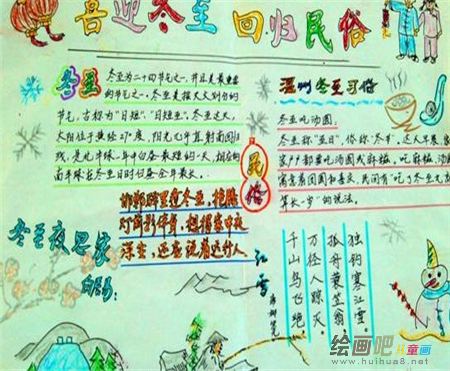 喜迎冬至 回归民俗
冬至
冬至为二十四节气之一,并且是最重要
的节气之一。冬至是按天文划分的
节气,古称为"日短"、"日短至"。冬至这天,
太阳位于黄经270度,阳光几乎直射南回归
线,是北半球一年中白昼最短的一天,相应的
南半球在冬至日时白昼全年最长。
民俗
温州冬至习俗
冬至吃汤圆
冬至称"亚日",俗称"冬节",这天早晨,家
家户户都要吃汤圆或麻糍。吃麻糍、汤圆
寓意着团圆和喜庆,民间有"吃了冬至
算长一岁"的说法。
冬至夜思家
白居易:
邯郸驿里逢冬至,抱膝
灯前影伴身。想得家中夜
深坐,还应说着远行人
江雪
千山鸟飞绝
万径人踪灭。
孤舟蓑笠翁
独钓寒江雪。
绘画吧儿童画
www.huihua8.net